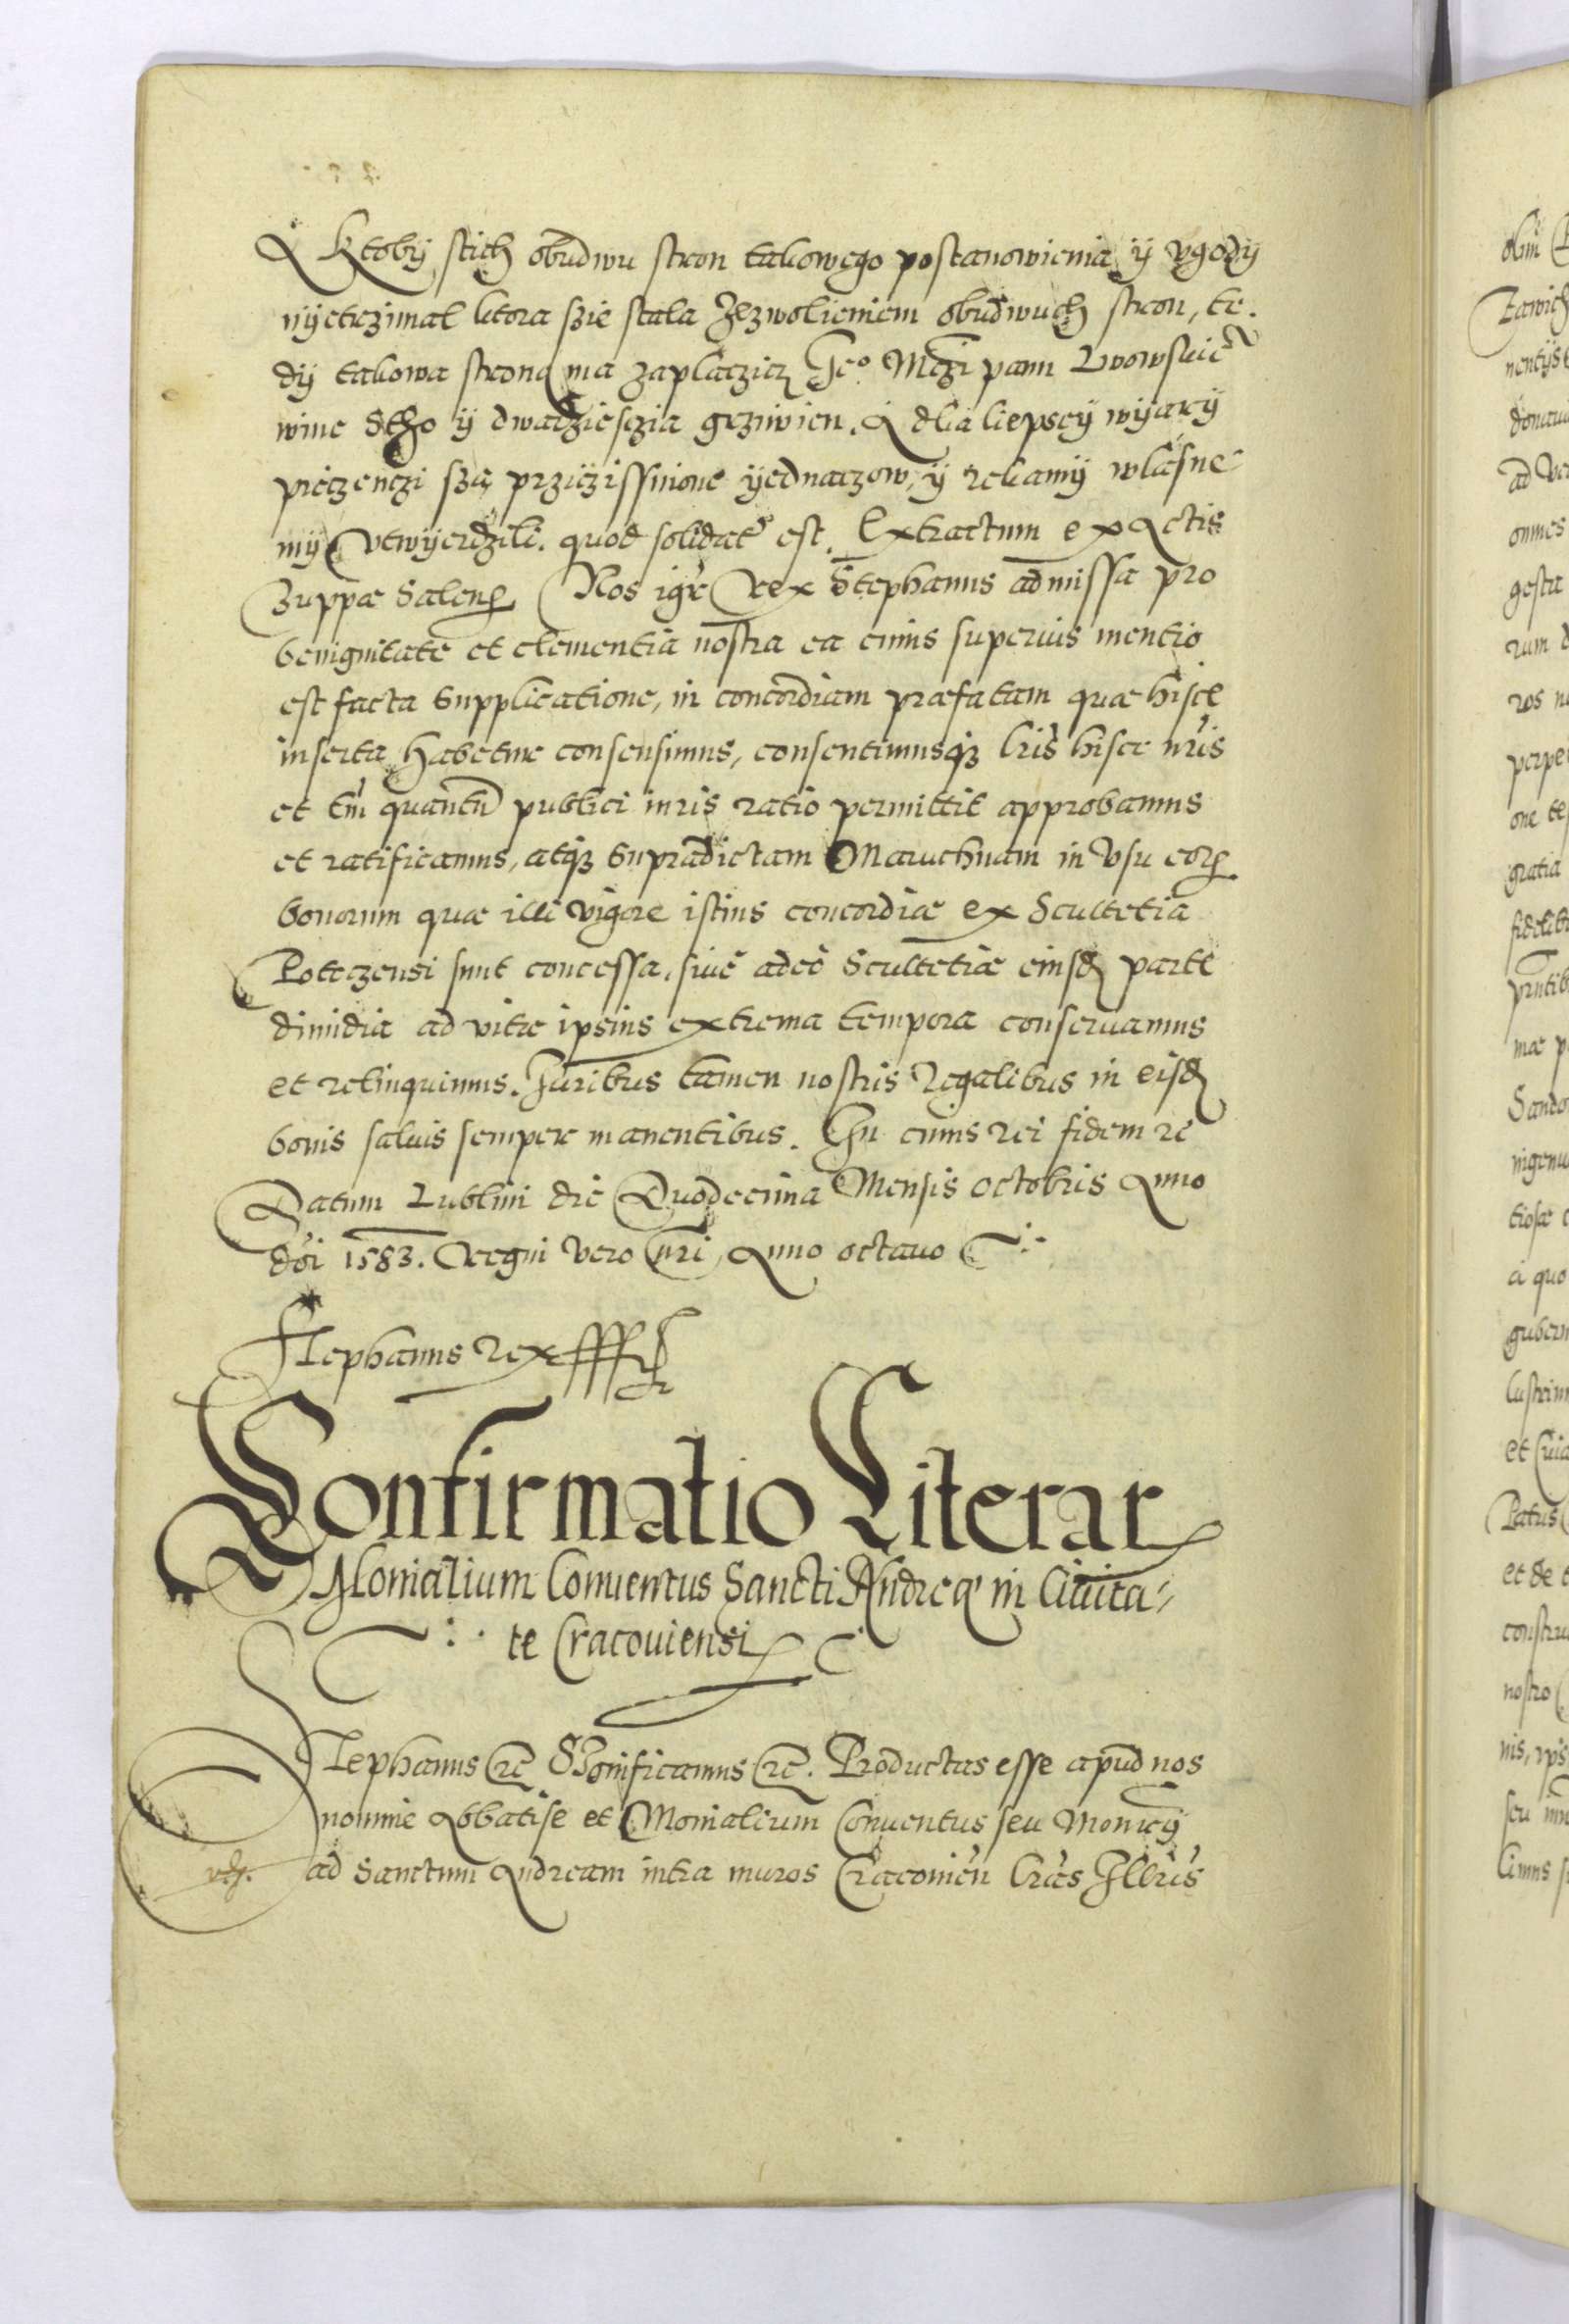 A Ktoby stich obudwu stron takowego postanowienia y vgody
nyetrzimal ktora szie stala Zezwolieniem obudwuch stron, te.
dy takowa strona ma zaplaczicz Jeo Mczi panu Lwowskie
wine Stho y dwadzieszcia grziwien. A dlia liepsey wyary
pieczenczi szą prziczissnione yednaczow, y rekamy wlasne
my vtwyerdzili. quod solidat est. Extractum ex Actis
Zuppæ Salens Nos igr Rex Stephanus admissa pro
benignitate et clementia nostra ea cuius superius mentio
est facta supplicatione, in concordiam præfatam quæ hisce
inserta habetur consensimus, consentimusq lris hisce nris
et tm quantu publici iuris ratio permittit approbamus
et ratificamus, atq supradictam Maruchnam in vsu eor
bonorum quæ illi vigore istius concordiæ ex Scultetia
Potoczensi sunt concessa, siue adeo Scultetiæ eiusd parte
dimidia ad vitæ ipsius extrema tempora conseruamus
et relinquimus. Juribus tamen nostris Regalibus in eisd
bonis saluis semper manentibus. In cuius rei fidem rc
Datum Lublini die Duodecima Mensis Octobris Anno
dni 1583. Regni vero nri Anno octauo
Stephanus Rex
Confirmatio Literar
Monialium Conuentus Sancti Andreæ in Ciuita-
te Cracouiensi
Stephanus rc Significamus rc. Productas esse apud nos
nomine Abbatisse et Monialium Conuentus seu Monrÿ
ad Sanctum Andream intra muros Cracouien lras Illris